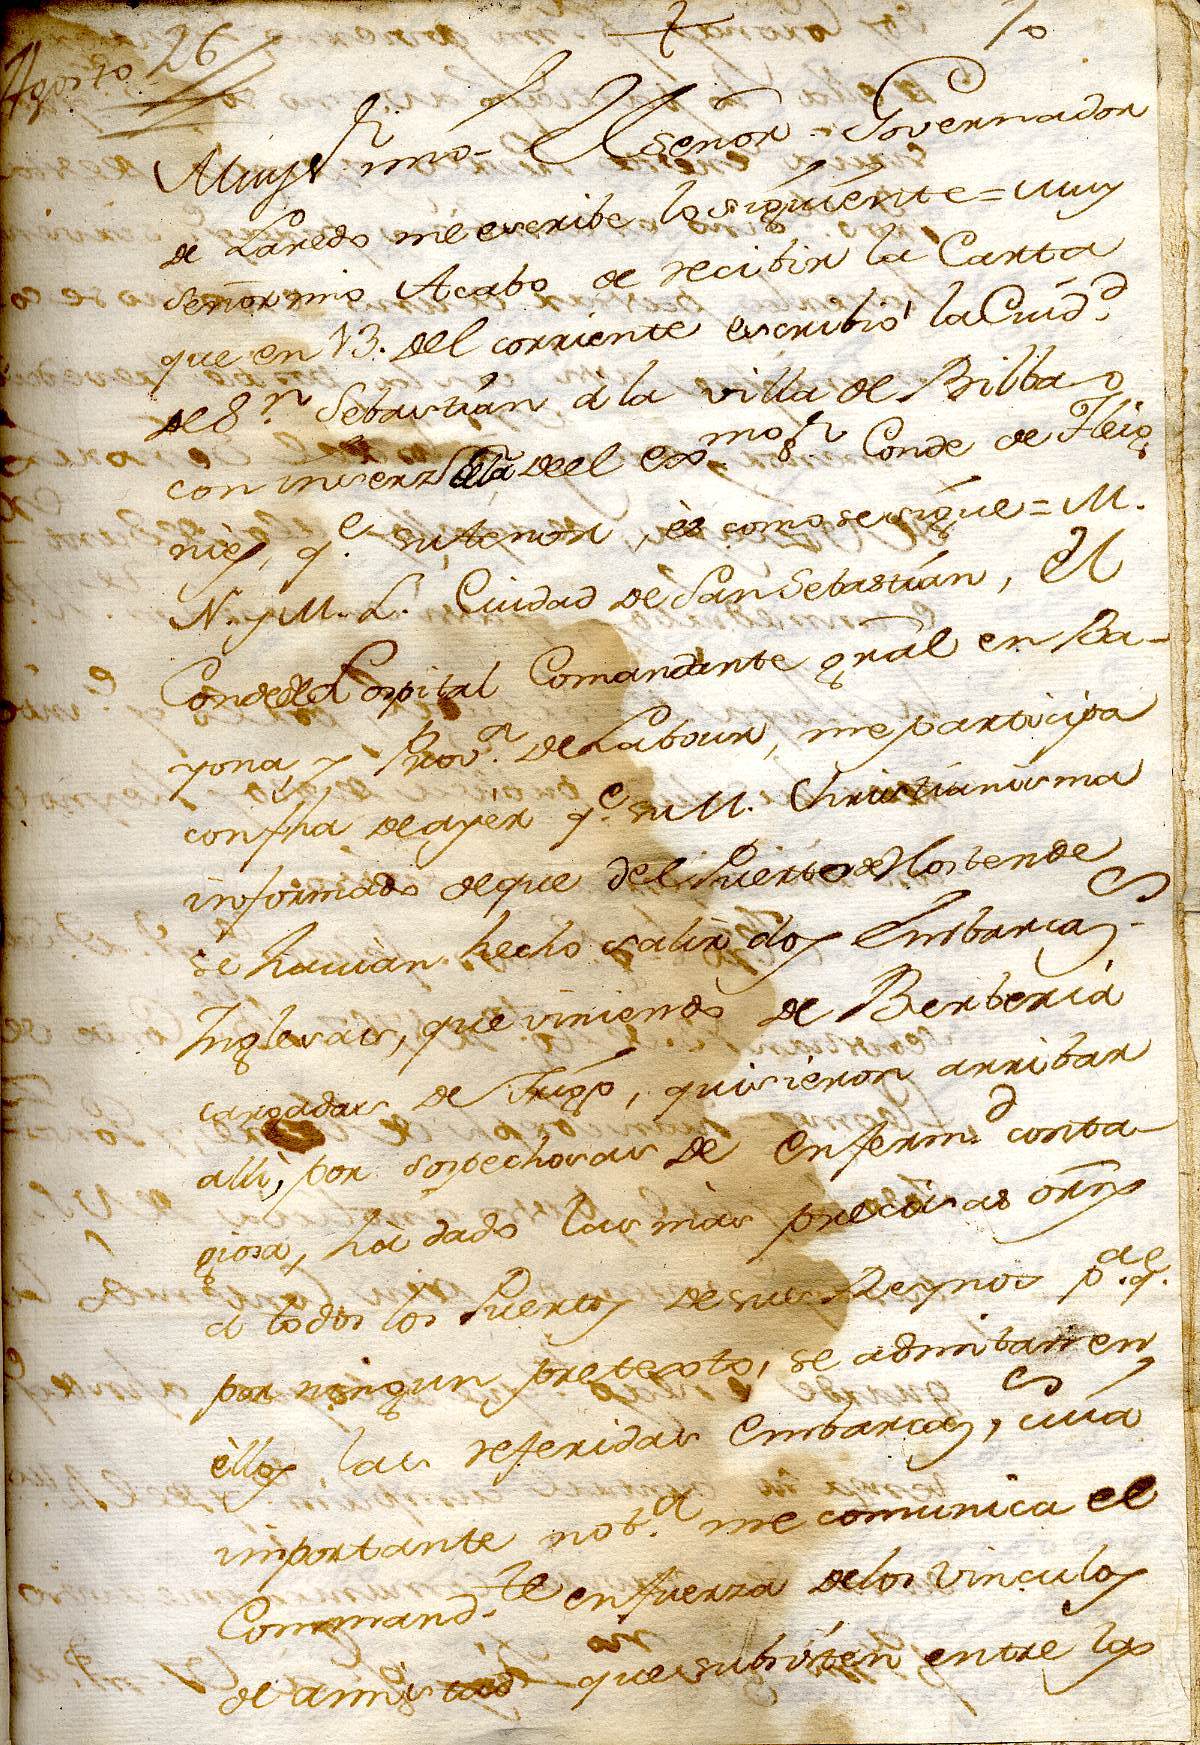 Agosto 26
10
Muy Sr. mio = El señor Governador
de Laredo me escribe lo siguiente = Muy
señor mio Acabo de recibir la Carta
que en 13. del corriente escribió la Ciud.d
de Sn. Sebastian á la villa de Bilbao
con inserz.n dela deel Exmo. Sr. Conde de Fleig
nies, q.e su tenor, es como se sigue = M.
N. y M. L. Ciudad de San Sebastián, El
Conde de L'ospital Comandante grâl en Ba-
yona, y Prov.a de Labour, me participa
con fha de ayer q.e su M. Christianisma
informado de que del Puerto de Hostende
se havian hecho salir dos Embarcas.
Inglesas, que viniendo de Berberiá
cargadas de Trigo, quisieron arribar
alli, por sospechosas de enferm.d conta-
giosa, há dado las mas precisas orñs
á todos los Puertos de sus Reynos p.a q.e
por ningun pretexto, se admitan en
éllos las referidas embarcas, cuiá
importante not.a me comunica el
Command.te en fuerza de los vinculos
de amistad que subsisten entre las